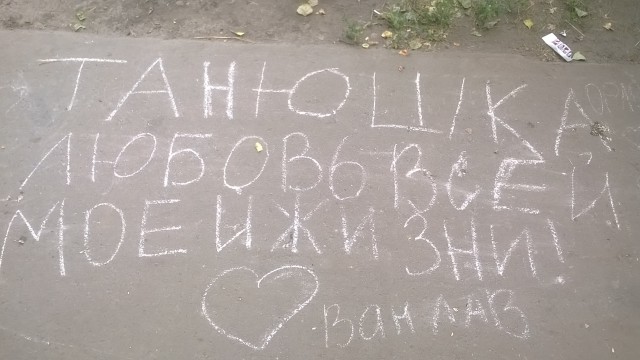 ТАНЮШКА
ЛЮБОВЬ ВСЕЙ
МОЕЙ ЖИЗНИ!
ВАН ЛАВ